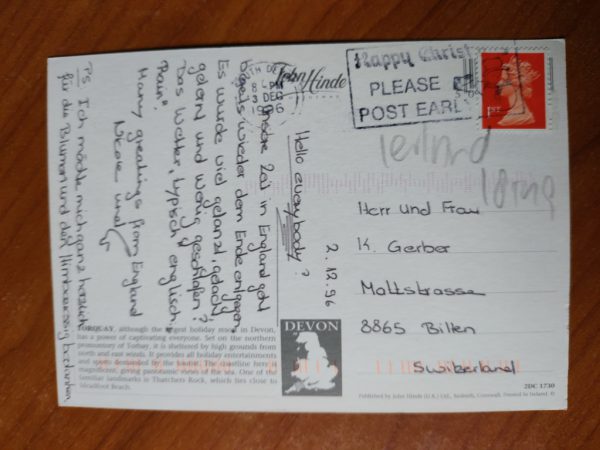 Hello everybody!
2.12.96
Unsere Zeit in England geht
bereits wieder dem Ende entgegen.
Es wurde viel getanzt, gelacht,
gelernt und wenig geschlafen!
Das Wetter, typisch englisch
"Rain"
Many greetings from England
Nicole und
PS: Ich möchte mich ganz herzlich
für die Blumen und den bedanken.
John Hinde
TH DE
8 PM
3 DEC
19 6
Happy Christ
PLEASE
POST EARL
1ST
Herr und Frau
K. Gerber
Mattstrasse
8865 Bilten
Switzerland
TORQUAY, although the largest holiday resort in Devon,
has a power of captivating everyone. Set on the northern
promontory of Torbay, it is sheltered by high grounds from
north and east winds. It provides all holiday entertainments
and sports demanded by the tourist. The coastline here is
magnificent, giving panoramic views of the sea. One of the
familiar landmarks is Thatchers Rock, which lies close to
Meadfoot Beach.
DEVON
2DC 1730
Published by John Hinde (U.K.) Ltd., Redruth, Cornwall. Printed in Ireland.